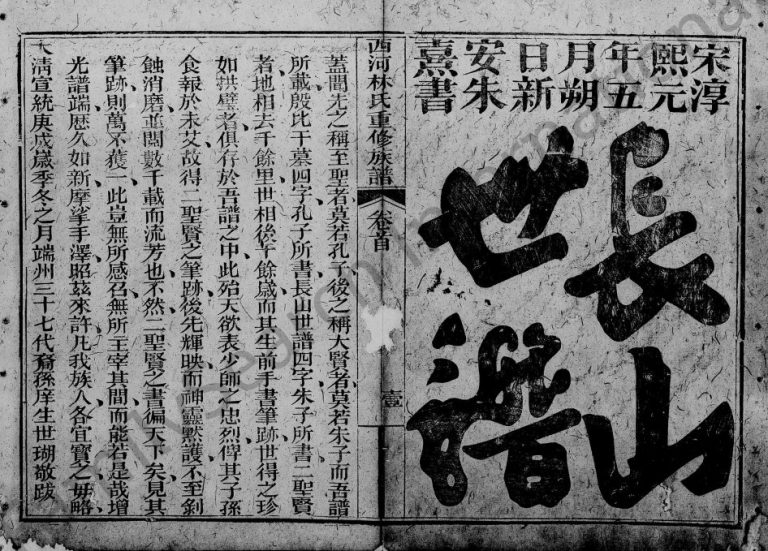 宋淳
熙元
年五
月朔
日新
安朱
熹書
長山
世譜
西河林氏重修族譜 卷首 壹
蓋聞先之稱至聖者莫若孔子後之稱大賢者莫若朱子而吾譜
所載殷比干墓四字孔子所書長山世譜四字朱子所書二聖賢
者地相去千餘里世相後千餘歲而其生前手書筆跡世得之珍
如拱璧者俱存於吾譜之中此殆天欲表少師之忠烈俾其子孫
食報於未艾故得二聖賢之筆跡後先輝映而神靈默護不至剝
蝕消磨並閱數千載而流芳也不然二聖賢之書徧天下矣見其
筆跡則萬不獲一此豈無所感召無所主宰其間而能若是哉增
光譜端歷久如新摩挲手澤昭茲來許凡我族人各宜寶之毋略
大清宣統庚戌歲季冬之月端州三十七代裔孫庠生世瑚敬跋